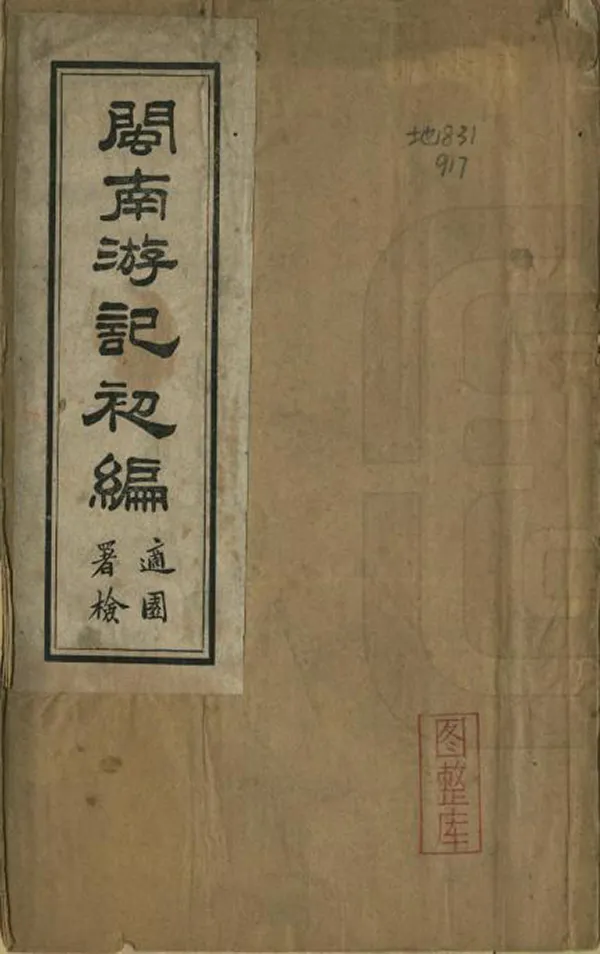 閩南游記初編
適園
署檢
地831
917
图整库